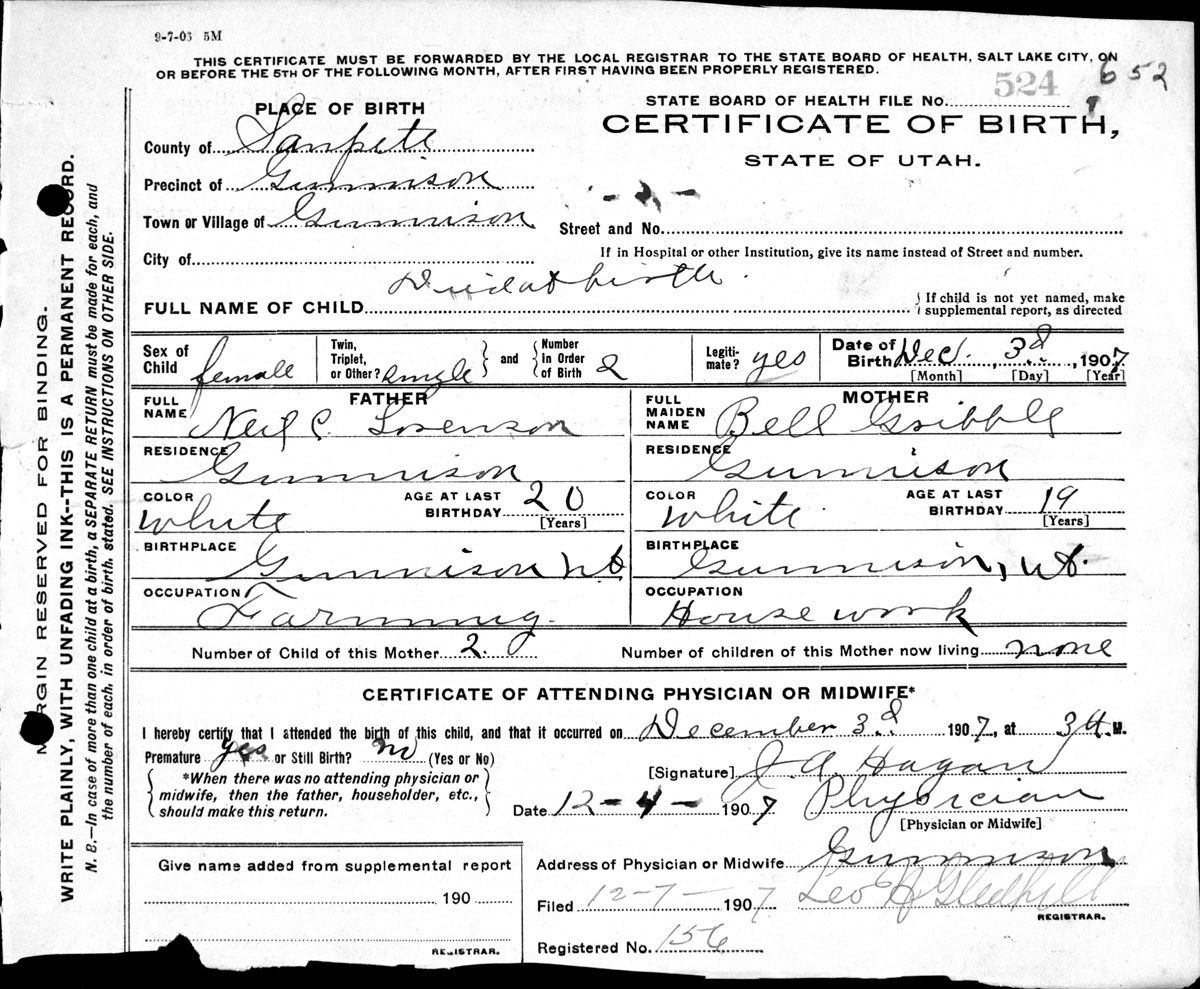 9-7-03 5M
THIS CERTIFICATE MUST BE FORWARDED BY THE LOCAL REGISTRAR TO THE STATE BOARD OF HEALTH, SALT LAKE CITY, ON
OR BEFORE THE 5TH OF THE FOLLOWING MONTH, AFTER FIRST HAVING BEEN PROPERLY REGISTERED.
652
PLACE OF BIRTH
STATE BOARD OF HEALTH FILE No. 524
County of Sanpete
CERTIFICATE OF BIRTH,
STATE OF UTAH.
Precinct of Gunnison
Town or Village of Gunnison
Street and No.
City of
If in Hospital or other Institution, give its name instead of Street and number.
FULL NAME OF CHILD Died at birth
If child is not yet named, make
supplemental report, as directed
Sex of Child female
Twin, Triplet, or Other? single and Number In Order of Birth 2
Legitimate? yes
Date of Birth Dec. 3d, 1907
[Month] [Day] [Year]
FATHER
FULL NAME Neil C. Sorenson
RESIDENCE Gunnison
COLOR White
AGE AT LAST BIRTHDAY 20 [Years]
BIRTHPLACE Gunnison Ut
OCCUPATION Farming.
MOTHER
FULL MAIDEN NAME Bell Gribble
RESIDENCE Gunnison
COLOR White
AGE AT LAST BIRTHDAY 19 [Years]
BIRTHPLACE Gunnison, Ut.
OCCUPATION House work
Number of Child of this Mother 2.
Number of children of this Mother now living none
CERTIFICATE OF ATTENDING PHYSICIAN OR MIDWIFE*
I hereby certify that I attended the birth of this child, and that it occurred on December 3d 1907, at 3 A.M.
Premature yes or Still Birth? no (Yes or No)
*When there was no attending physician or
midwife, then the father, householder, etc.,
should make this return.
[Signature] J. A. Hagan
Date 12-4- 1907 Physician
[Physician or Midwife]
Give name added from supplemental report
190
REGISTRAR.
Address of Physician or Midwife Gunnison
Filed 12-7- 1907 Leo N Gledhill
REGISTRAR.
Registered No. 156
MARGIN RESERVED FOR BINDING.
WRITE PLAINLY, WITH UNFADING INK--THIS IS A PERMANENT RECORD.
N. B.—In case of more than one child at a birth, a SEPARATE RETURN must be made for each, and
the number of each, in order of birth, stated. SEE INSTRUCTIONS ON OTHER SIDE.